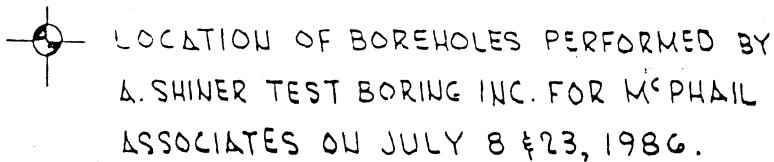 LOCATION OF BOREHOLES PERFORMED BY
A. SHINER TEST BORING INC. FOR McPHAIL
ASSOCIATES ON JULY 8 & 23, 1986.